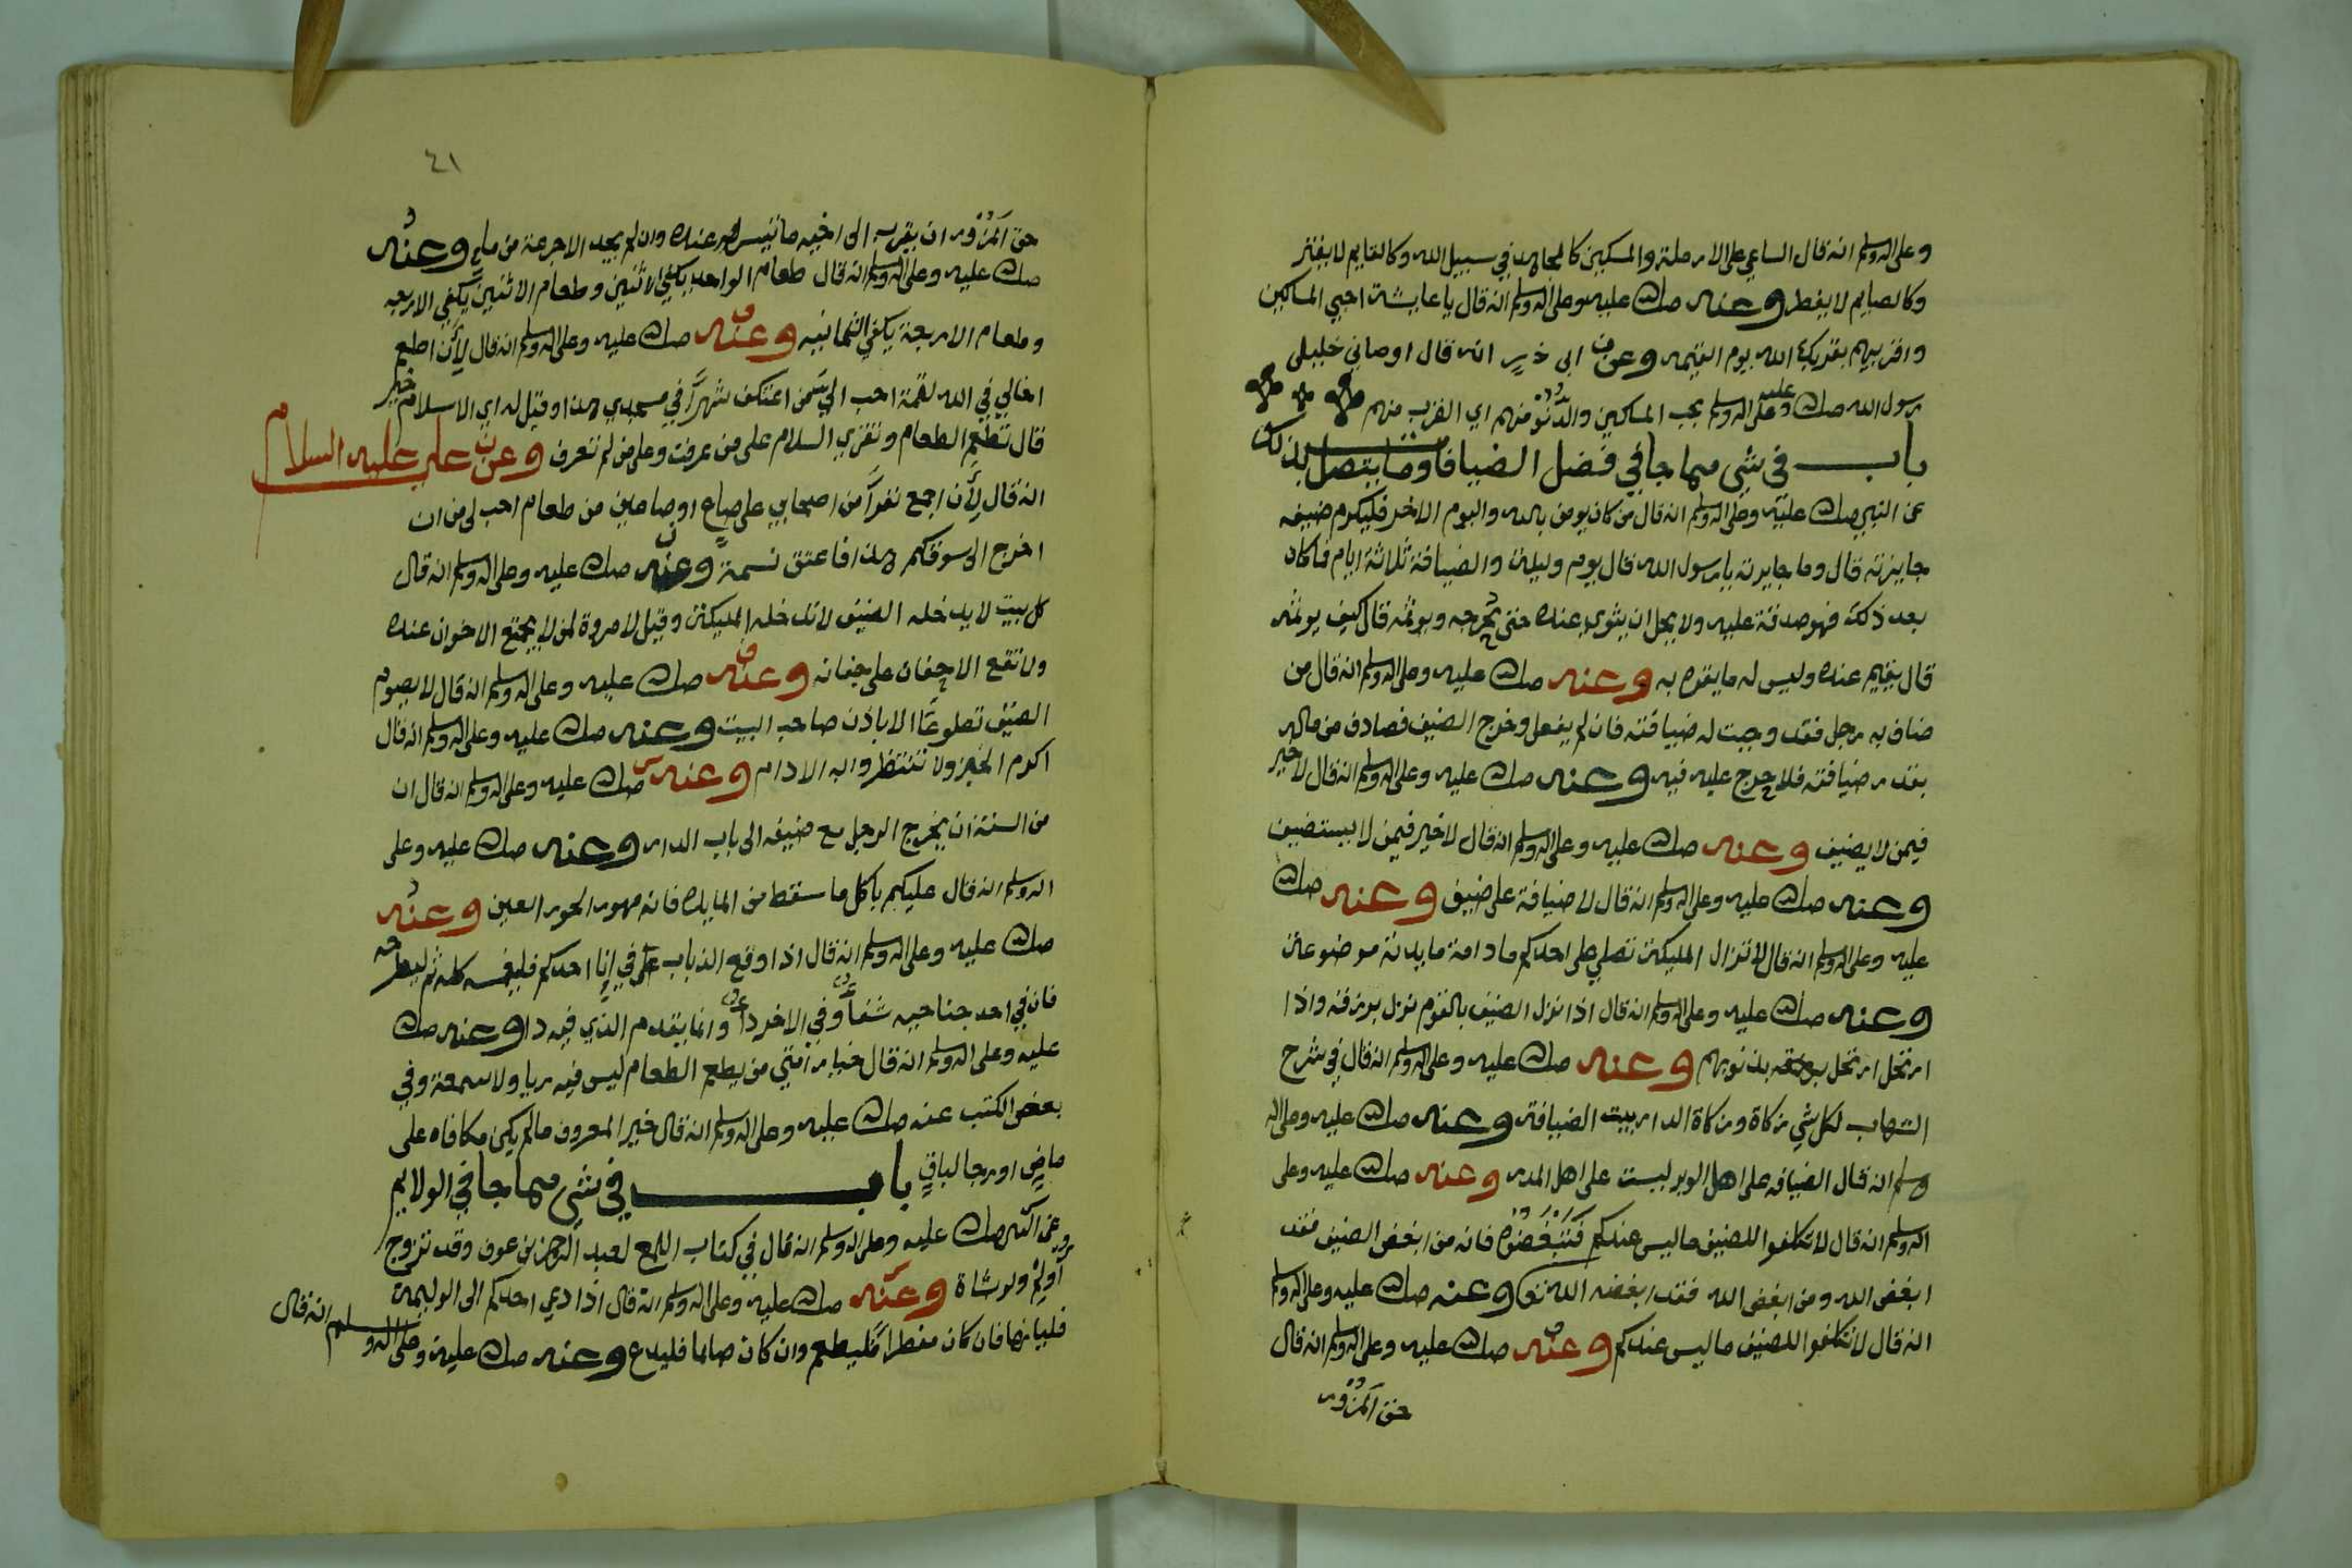 وعلى اله وسلم انه قال الساعي على الارملة والمسكين كالمجاهد في سبيل الله وكالقايم لا يفتر
وكالصايم لا يفطر وعنه صلى الله عليه وعلى اله وسلم انه قال يا عايشة احبي المساكين
وقربيهم يقربك الله يوم القيمه وعن ابي ذر انه قال اوصاني خليلي
رسول الله صلى الله عليه وعلى اله وسلم بحب المساكين والدنو منهم اي القرب منهم
باب في شي مما جا في فضل الضيافة وما يتصل بذلك
عن النبي صلى الله عليه وعلى اله وسلم انه قال من كان يومن بالله واليوم الاخر فليكرم ضيفه
جايزته قال وما جايزته يا رسول الله قال يوم وليلة والضيافة ثلاثة ايام فما كان
بعد ذلك فهو صدقة عليه ولا يحل ان يثوي عنده حتى يحرجه ويوثمه قال كيف يوثمه
قال يقيم عنده وليس له ما يقوم به وعنه صلى الله عليه وعلى اله وسلم انه قال من
ضاف به رجل فقد وجبت له ضيافته فان لم يفعل وخرج الضيف فصادف من ماله
بقدر ضيافته فلا حرج عليه فيه وعنه صلى الله عليه وعلى اله وسلم انه قال لا خير
فيمن لا يضيف وعنه صلى الله عليه وعلى اله وسلم انه قال لا خير فيمن لا يستضيف
وعنه صلى الله عليه وعلى اله وسلم انه قال لا ضيافة على ضيف وعنه صلى الله
عليه وعلى اله وسلم انه قال لا تزال المليكة تصلي على احدكم ما دامة مايدته موضوعة
وعنه صلى الله عليه وعلى اله وسلم انه قال اذا نزل الضيف بالقوم نزل برزقه واذا
ارتحل ارتحل بذنوبهم وعنه صلى الله عليه وعلى اله وسلم انه قال في شرح
الشهاب لكل شي زكاة وزكاة الدار بيت الضيافة وعنه صلى الله عليه وعلى اله
وسلم انه قال الضيافه على اهل الوبر ليست على اهل المدر وعنه صلى الله عليه وعلى
اله وسلم انه قال لا تكلفوا للضيف ما ليس عندكم فتبغضوه فانه من ابغض الضيف فقد
ابغض الله ومن ابغض الله فقد ابغضه الله وعنه صلى الله عليه وعلى اله وسلم
انه قال لا تتكلفوا للضيف ما ليس عندكم وعنه صلى الله عليه وعلى اله وسلم انه قال
حق المزور
٤١
حق المزور ان يقرب الى اخيه ما تيسر عنده وان لم يجد الا جرعة من ماء وعنه
صلى الله عليه وعلى اله وسلم انه قال طعام الواحد يكفي الاثنين وطعام الاثنين يكفي الاربعه
وطعام الاربعة يكفي الثمانيه وعنه صلى الله عليه وعلى اله وسلم انه قال لان اطعم
اخا لي في الله لقمة احب الي من اعتكف شهرا في مسجدي هذا وقيل له اي الاسلام خير
قال تطعم الطعام وتقري السلام على من عرفت وعلى من لم تعرف وعن علي عليه السلام
انه قال لان اجمع نفرا من اصحابي على صاع او صاعين من طعام احب الي من ان
اخرج الى سوقكم هذا فاعتق نسمة وعنه صلى الله عليه وعلى اله وسلم انه قال
كل بيت لا يدخله الضيف لا تدخله المليكة وقيل لا مروة لمن لا يجتمع الاخوان عنده
ولا تقع الاجفان على جفانه وعنه صلى الله عليه وعلى اله وسلم انه قال لا يصوم
الضيف تطوعا الا باذن صاحب البيت وعنه صلى الله عليه وعلى اله وسلم انه قال
اكرم الخبز ولا تنتظروا به الادام وعنه صلى الله عليه وعلى اله وسلم انه قال ان
من السنة ان يخرج الرجل مع ضيفه الى باب الدار وعنه صلى الله عليه وعلى
اله وسلم انه قال عليكم باكل ما سقط من المايده فانه مهور الحور العين وعنه
صلى الله عليه وعلى اله وسلم انه قال اذا وقع الذباب في انا احدكم فليغمسه كله ثم ليطرحه
فان في احد جناحيه شفاء وفي الاخر داء وانما يقدم الذي فيه دا وعنه صلى الله
عليه وعلى اله وسلم انه قال خيار امتي من يطعم الطعام ليس فيه ريا ولا سمعة وفي
بعض الكتب عنه صلى الله عليه وعلى اله وسلم انه قال خير المعروف ما لم يكن مكافاه على
ماض او رجا لباق باب في شي مما جا في الولايم
وعن النبي صلى الله عليه وعلى اله وسلم انه قال في كتاب اللمع لعبد الرحمن بن عوف وقد تزوج
اولم ولو بشاة وعنه صلى الله عليه وعلى اله وسلم انه قال اذا دعي احدكم الى الوليمة
فلياتها فان كان مفطرا فليطعم وان كان صايما فليدع وعنه صلى الله عليه وعلى اله وسلم انه قال